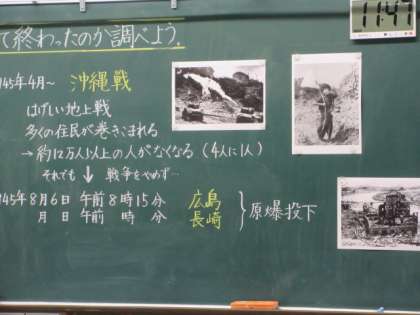 て終わったのか調べよう。
11:47
945年4月〜 沖縄戦
はげしい地上戦
多くの住民が巻きこまれる
→約12万人以上の人がなくなる(4人に1人)
それでも ↓ 戦争をやめず…
945年8月6日 午前8時15分 広島
月 日 午前 時 分 長崎
原爆投下